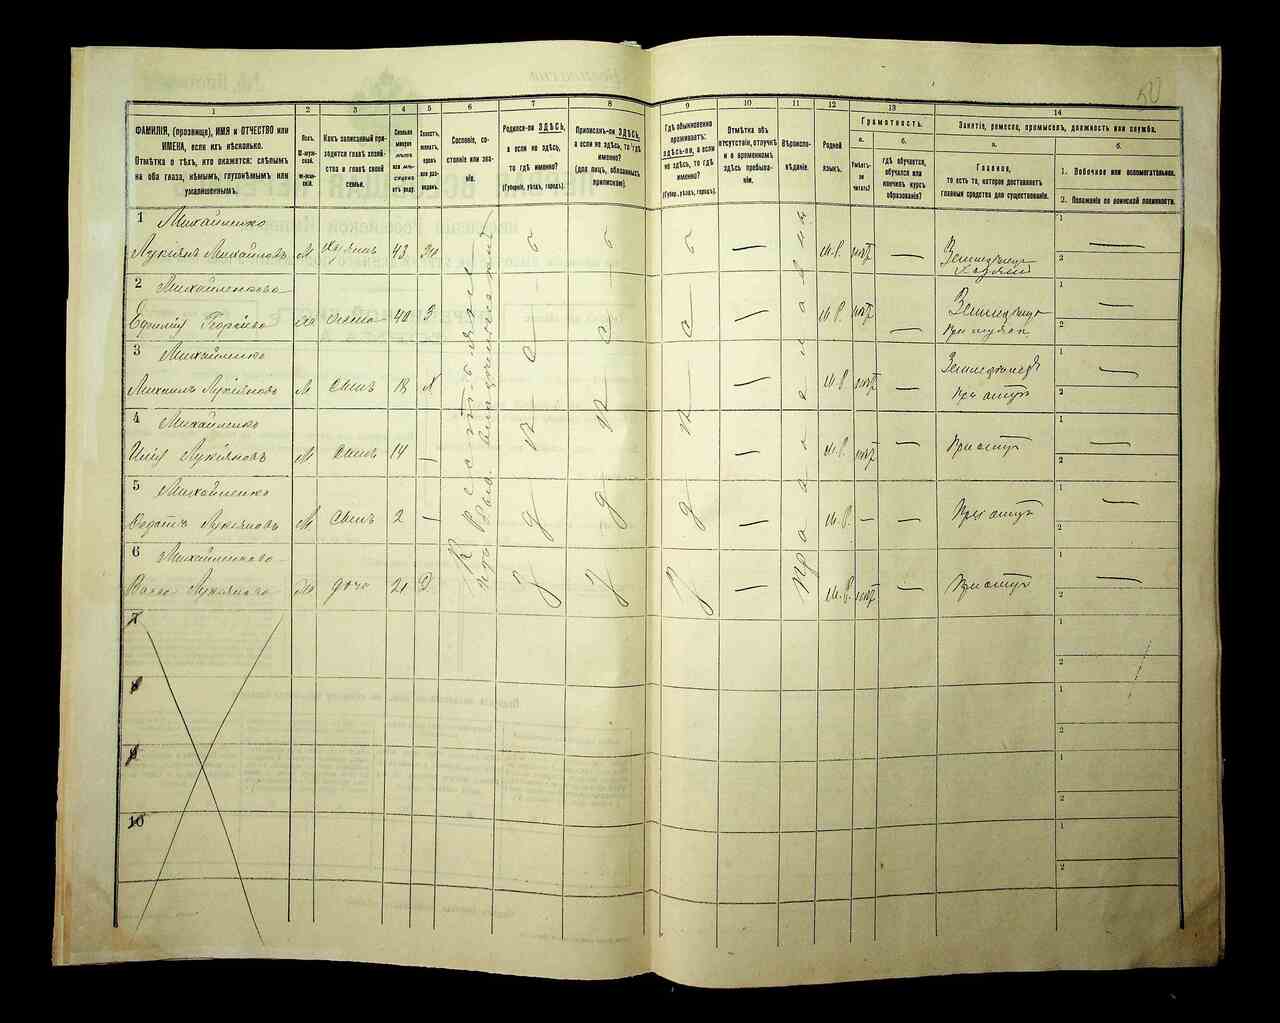 50
1 2 3 4 5 6 7 8 9 10 11 12 13 14
ФАМИЛІЯ, (прозвище), ИМЯ и ОТЧЕСТВО или
ИМЕНА, если ихъ нѣсколько.
Отмѣтка о тѣхъ, кто окажется: слѣпымъ
на оба глаза, нѣмымъ, глухонѣмымъ или
умалишеннымъ.
Полъ.
М-мужской.
Ж-женскій.
Какъ записанный приходится
главѣ хозяйства
и главѣ своей
семьи.
Сколько
минуло
лѣтъ
или мѣсяцевъ
отъ роду.
Холостъ,
женатъ,
вдовъ
или разведенъ.
Сословіе, состояніе
или званіе.
Родился-ли ЗДѢСЬ,
а если не здѣсь,
то гдѣ именно?
(Губернія, уѣздъ, городъ).
Приписанъ-ли ЗДѢСЬ,
а если не здѣсь, то гдѣ
именно?
(для лицъ, обязанныхъ
припискою).
Гдѣ обыкновенно
проживаетъ:
ЗДѢСЬ-ли, а если
не здѣсь, то гдѣ
именно?
(Губерн., уѣздъ, городъ).
Отмѣтка объ
отсутствіи, отлучкѣ
и о временномъ
здѣсь пребываніи.
Вѣроисповѣданіе.
Родной
языкъ.
Грамотность.
а.
Умѣетъ-ли
читать?
б.
гдѣ обучается,
обучался или
кончилъ курсъ
образованія?
Занятіе, ремесло, промыселъ, должность или служба.
а.
Главное,
то есть то, которое доставляетъ
главныя средства для существованія.
б.
1. Побочное или вспомогательное.
2. Положеніе по воинской повинности.
1 Михайленко
Лукіянъ Михайловъ М Хозяинъ 43 Ж — М.Р. нѣтъ — Земледѣлецъ
Хозяинъ 1 — 2
2 Михайленкова
Ефимія Георгіева Ж Жена 40 З — М.Р. нѣтъ — 1 — 2
3 Михайленко
Михаилъ Лукіяновъ М Сынъ 18 Х — М.Р. нѣтъ — Земледѣлецъ
При отцѣ 1 — 2
4 Михайленко
Лукіяновъ М Сынъ 14 — — М.Р. нѣтъ — При отцѣ 1 — 2
5 Михайленко
Лукіяновъ М Сынъ 2 — — М.Р. — — При отцѣ 1 — 2
6 Михайленкова
Лукіянова Ж дочь 21 Д — М.Р. нѣтъ — При отцѣ 1 — 2
Крестьянинъ
Здѣсь
Здѣсь
Здѣсь
Православный
7 1 2
8 1 2
9 1 2
10 1 2